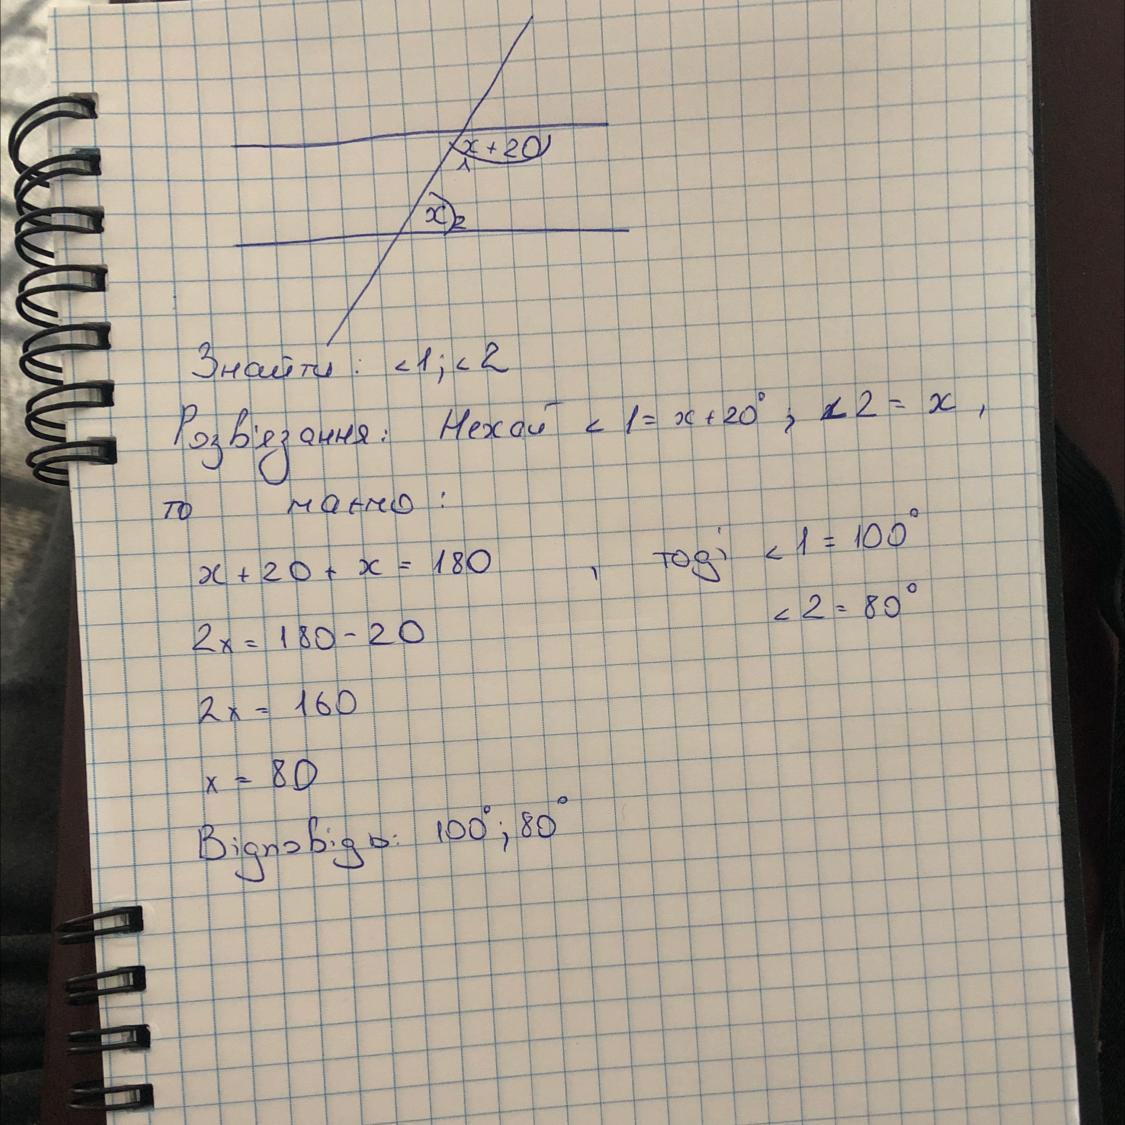 x + 20
1
x
2
Знайти: <1; <2
Розв'язання: Нехай <1 = x + 20°; <2 = x,
то маємо:
x + 20 + x = 180, тоді <1 = 100°
<2 = 80°
2x = 180 - 20
2x = 160
x = 80
Відповідь: 100°; 80°